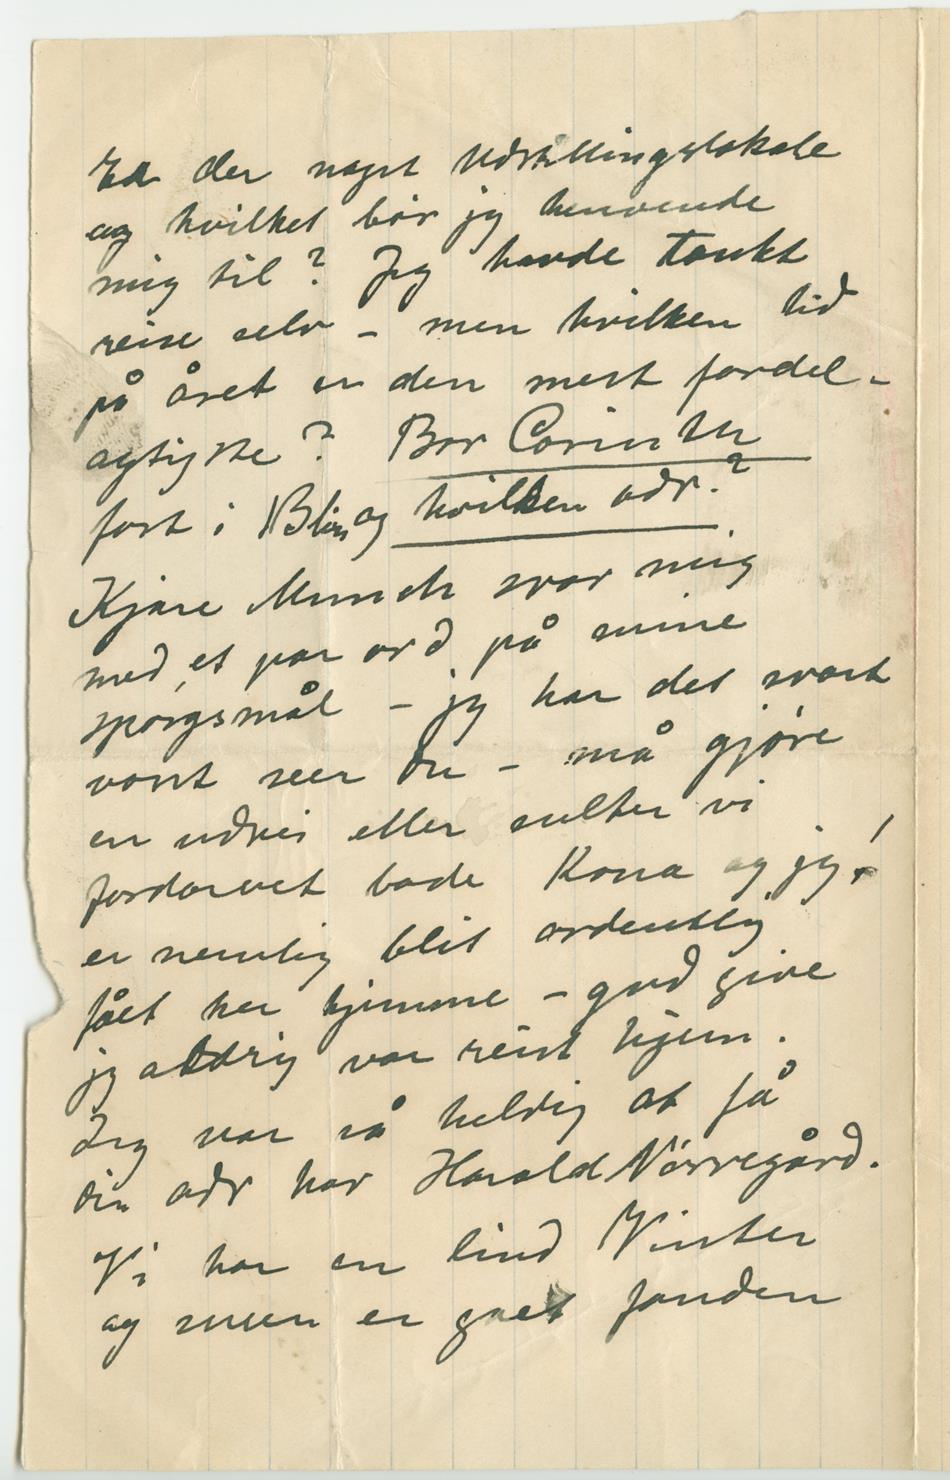 Er der noget Udstillingslokale
og hvilket bör jeg henvende
mig til? Jeg havde tænkt
reise selv – men hvilken tid
på året er den mest fordel-
agtigste? Bor Corinth
fort i Blin og hvilken adr.?
Kjære Munch svar mig
med et par ord på mine
spörgsmål – jeg har det svært
vont seer du – må gjöre
en udvei eller sulter vi
fordærvet både Kona og jeg!
er nemlig blit ordentlig
fået her hjemme – gud give
jeg aldrig var reist hjem.
Jeg var så heldig at få
din adr har Harald Nörregård.
Vi har en lind Vinter
og sneen er gået fanden